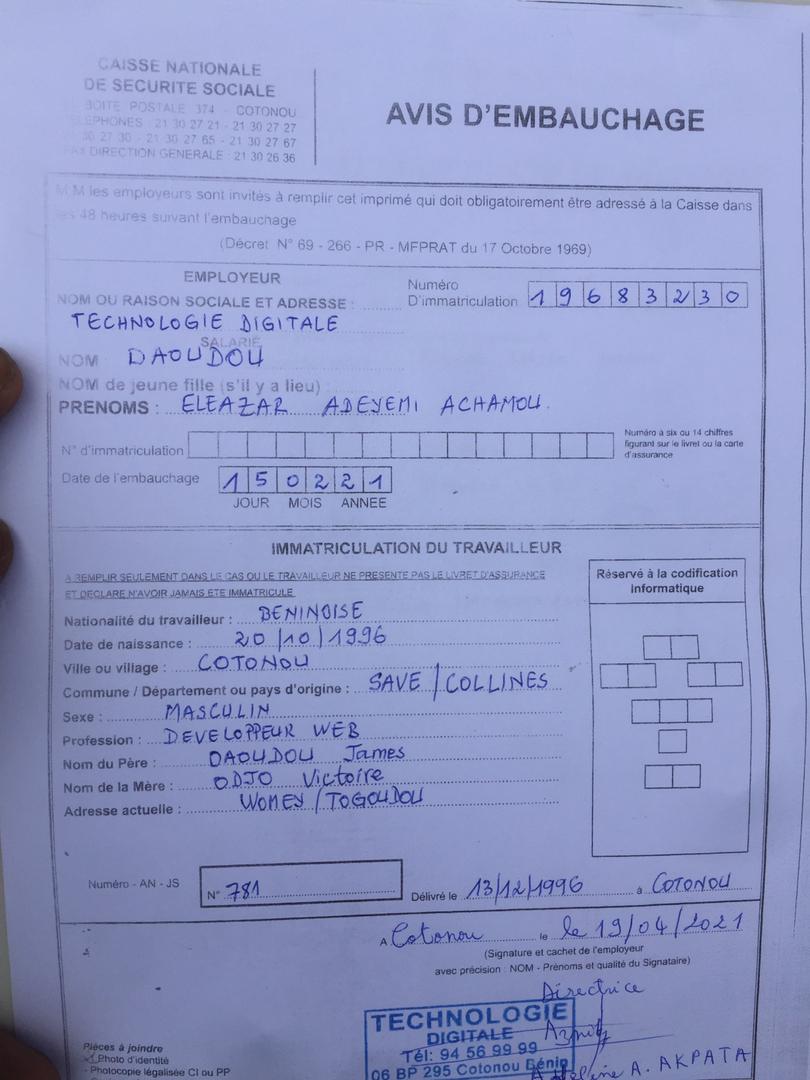 CAISSE NATIONALE
DE SECURITE SOCIALE
BOITE POSTALE 374 - COTONOU
TELEPHONES : 21 30 27 21 - 21 30 27 27
30 27 30 - 21 30 27 65 - 21 30 27 67
FAX DIRECTION GENERALE : 21 30 26 36
AVIS D'EMBAUCHAGE
M.M les employeurs sont invités à remplir cet imprimé qui doit obligatoirement être adressé à la Caisse dans
les 48 heures suivant l'embauchage
(Décret N° 69 - 266 - PR - MFPRAT du 17 Octobre 1969)
EMPLOYEUR
NOM OU RAISON SOCIALE ET ADRESSE :
Numéro
D'immatriculation 19683230
TECHNOLOGIE DIGITALE
SALARIE
NOM DAOUDOU
NOM de jeune fille (s'il y a lieu)
PRENOMS : ELEAZAR ADEYEMI ACHAMOU.
N° d'immatriculation
Numéro à six ou 14 chiffres
figurant sur le livret ou la carte
d'assurance
Date de l'embauchage 150221
JOUR MOIS ANNEE
IMMATRICULATION DU TRAVAILLEUR
A REMPLIR SEULEMENT DANS LE CAS OU LE TRAVAILLEUR NE PRESENTE PAS LE LIVRET D'ASSURANCE
ET DECLARE N'AVOIR JAMAIS ETE IMMATRICULE
Réservé à la codification
informatique
Nationalité du travailleur : BENINOISE
Date de naissance : 20/10/1996
Ville ou village : COTONOU
Commune / Département ou pays d'origine : SAVE / COLLINES
Sexe : MASCULIN
Profession : DEVELOPPEUR WEB
Nom du Père : DAOUDOU James
Nom de la Mère : ODJO Victoire
Adresse actuelle : WOMEY / TOGOUDOU
Numéro - AN - JS N° 781 Délivré le 13/12/1996 à COTONOU
A Cotonou le le 19/04/2021
(Signature et cachet de l'employeur
avec précision : NOM - Prénoms et qualité du Signataire)
Directrice
TECHNOLOGIE
DIGITALE
Tél: 94 56 99 99
06 BP 295 Cotonou Bénin
A. AKPATA
Pièces à joindre
- Photo d'identité
- Photocopie légalisée CI ou PP